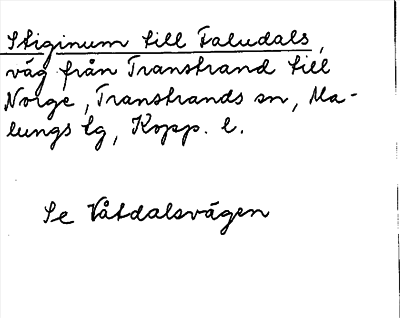 Stiginum till Faludals,
väg från Transtrand till
Norge, Transtrands sn, Ma-
lungs tg, Kopp. l.
Se Våtdalsvägen